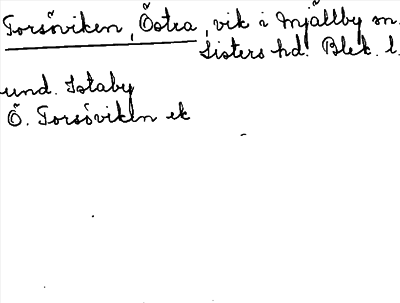 Torsöviken, Östra, vik i Mjällby sn.
Listers hd. Blek. l.
und. Istaby
Ö. Torsöviken ek